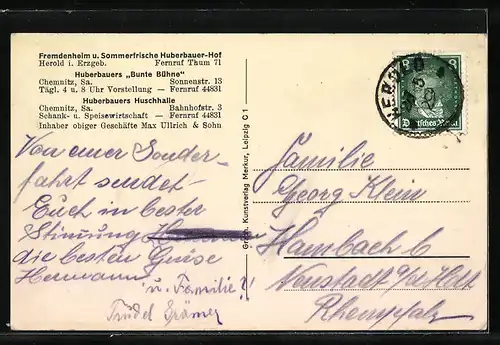 Fremdenheim u. Sommerfrische Huberbauer-Hof
Herold i. Erzgeb. Fernruf Thum 71
Huberbauers „Bunte Bühne“
Chemnitz, Sa. Sonnenstr. 13
Tägl. 4 u. 8 Uhr Vorstellung — Fernruf 44831
Huberbauers Huschhalle
Chemnitz, Sa. Bahnhofstr. 3
Schank- u. Speisewirtschaft — Fernruf 44831
Inhaber obiger Geschäfte Max Ullrich & Sohn
Von einer Sonder-
fahrt sendet
Euch in bester
Stimmung
die besten Grüsse
Hermann
u. Familie
Trudel Krämer
Kunstverlag Merkur, Leipzig C 1
8 8
Deutsches Reich
HEROLD
Familie
Georg Klein
Hambach b
Neustadt a/d Hdt
Rheinpfalz